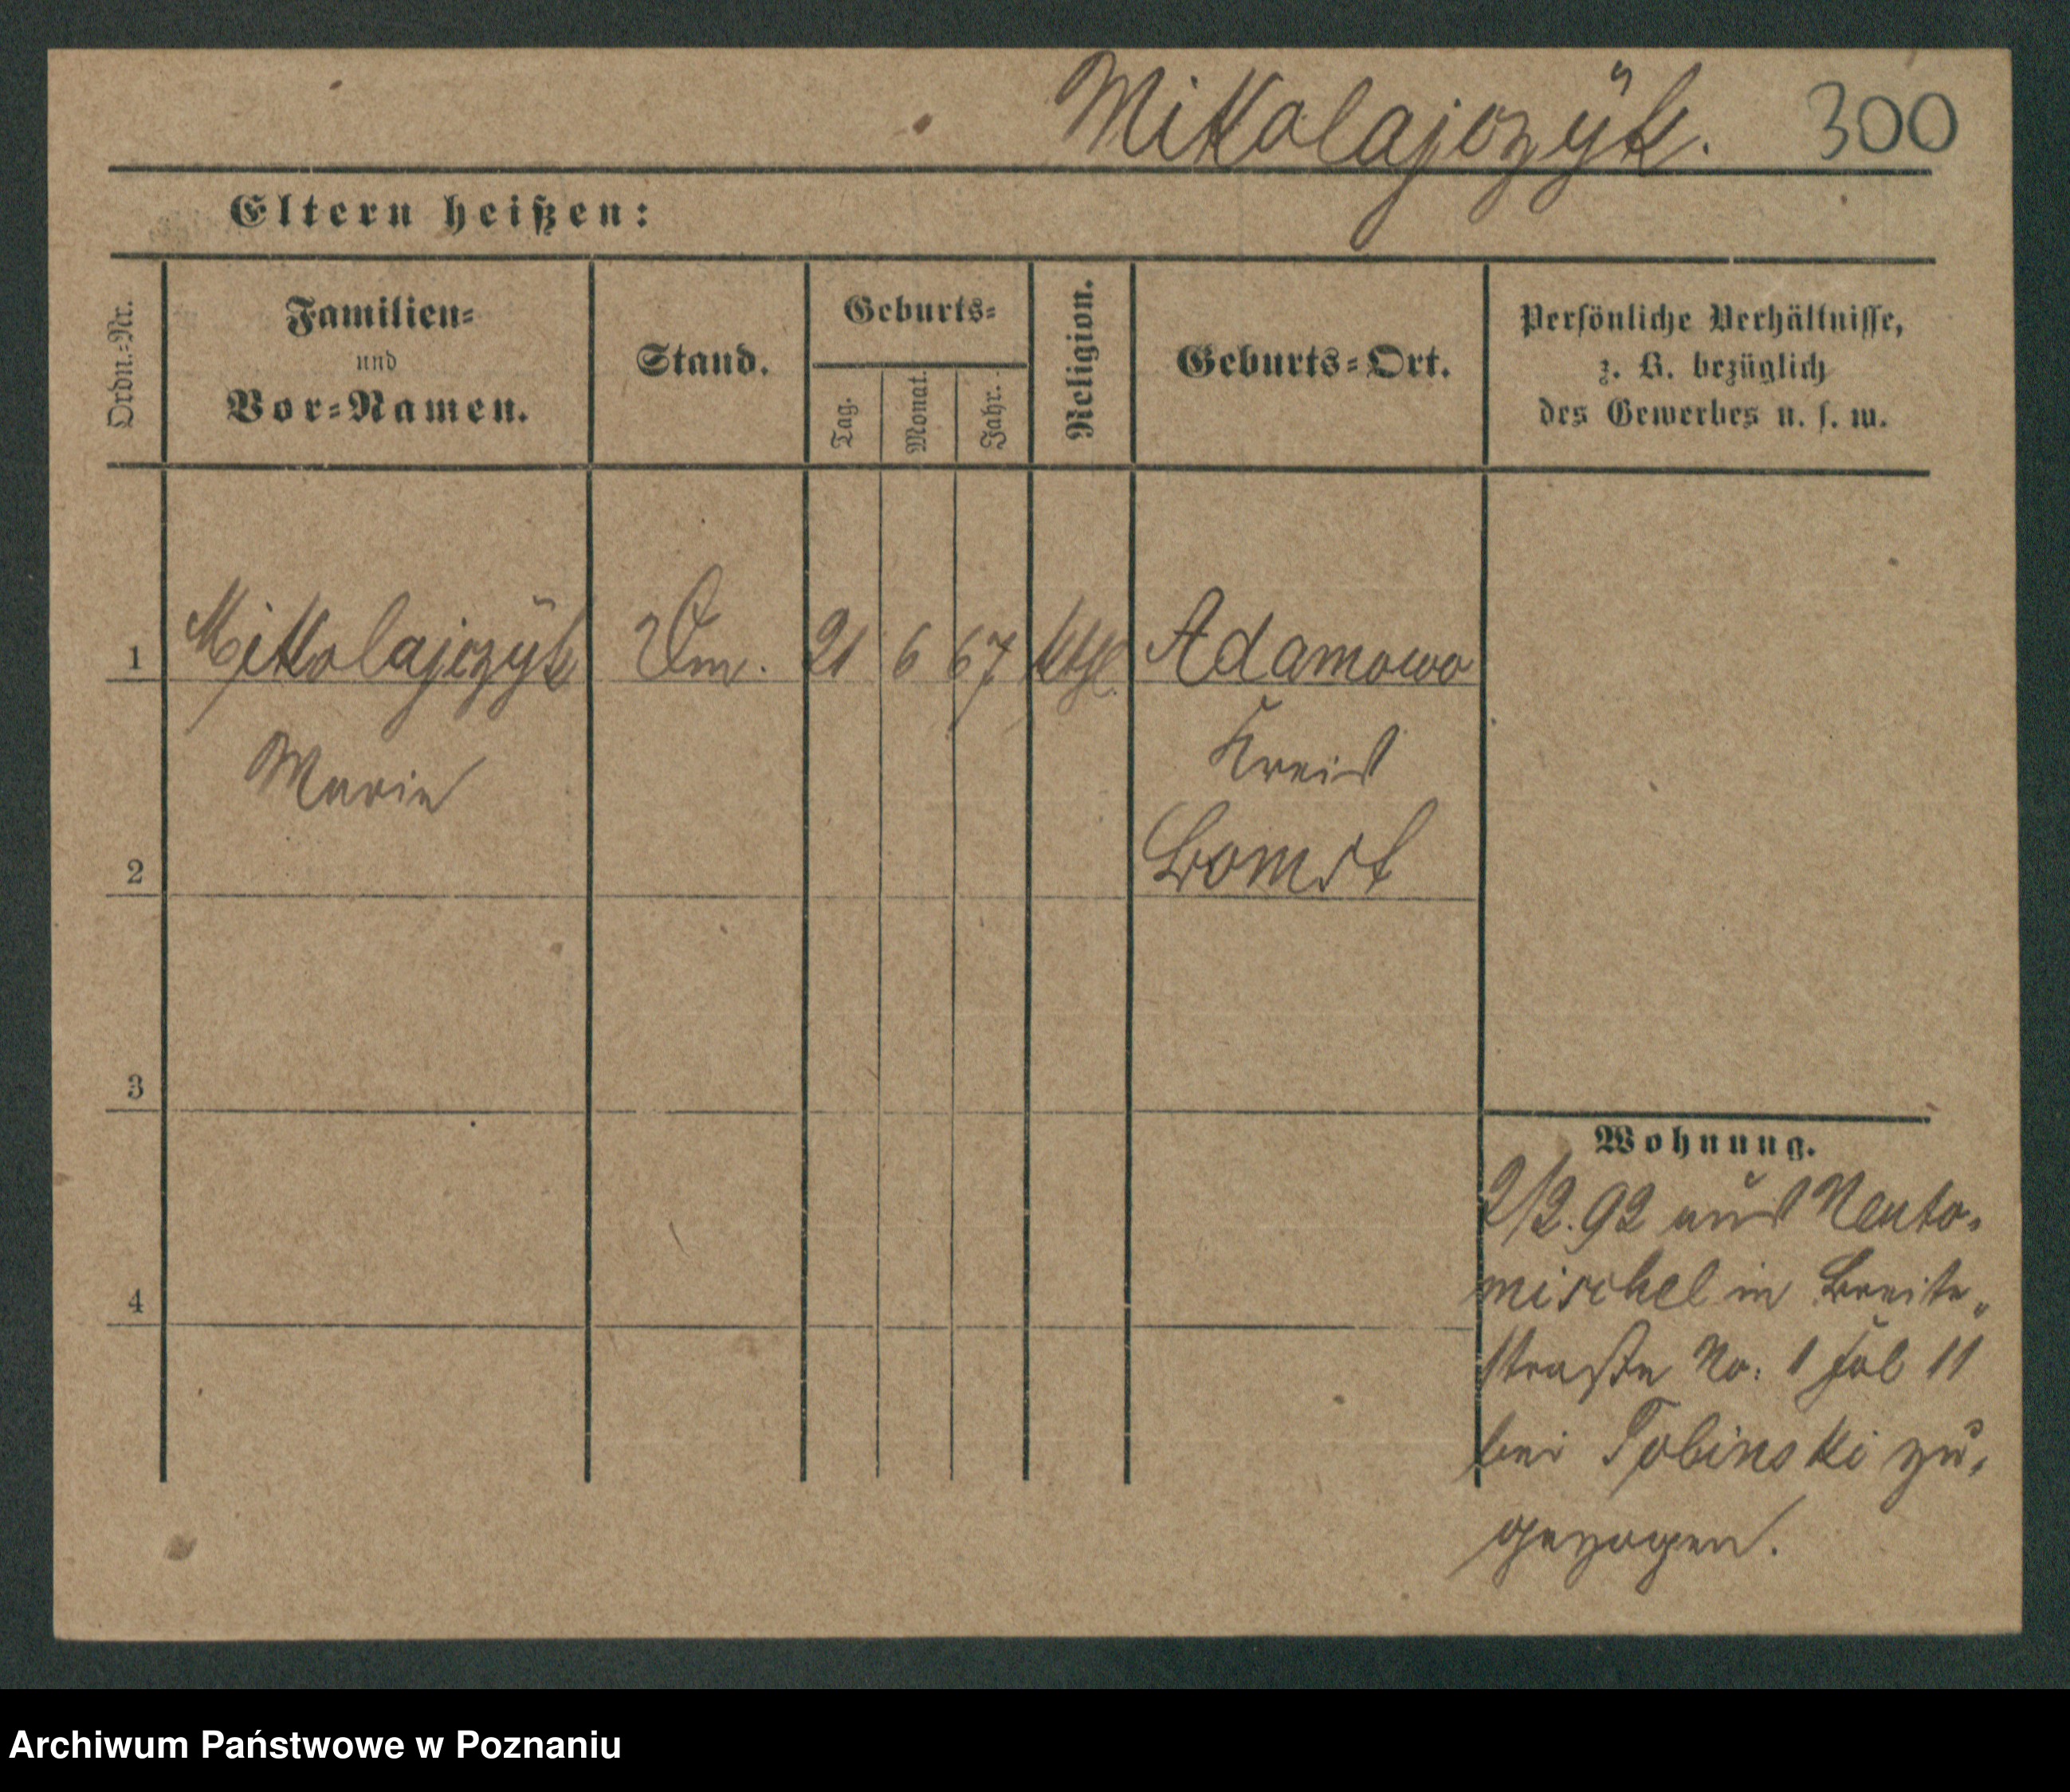 Mikolajczÿk. 300
Eltern heißen:
Ordn.-Nr.
Familien-
und
Vor-Namen.
Stand.
Geburts-
Tag.
Monat.
Jahr.
Religion.
Geburts-Ort.
Persönliche Verhältnisse,
z. B. bezüglich
des Gewerbes u. s. w.
1 Mikolajczÿk 21 6 67 kth. Adamowo
Marie
Kreis
2 Bomst
3
4
Wohnung.
2/2.92 aus Neuto-
mischel in Breite-
straße No: 1
bei Tobinski zu-
gezogen.
Archiwum Państwowe w Poznaniu